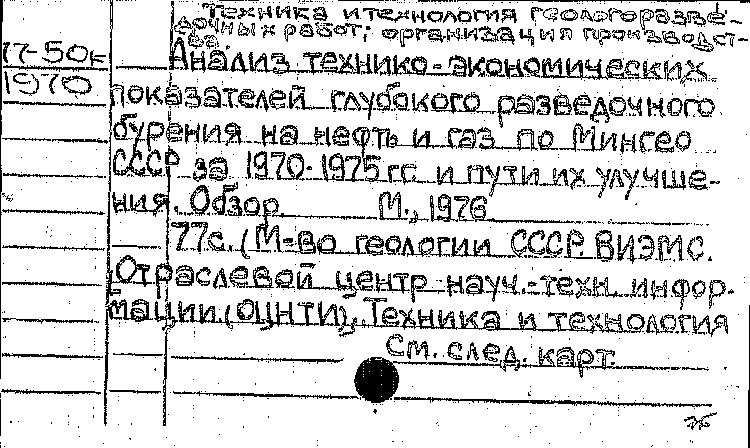 Техника и технология геологоразве-
дочных работ; организация производст-
ва.
П-50к
Анализ технико-экономических
1970
показателей глубокого разведочного
бурения на нефть и газ по Мингео
СССР за 1970-1975 гг. и пути их улучше-
ния. Обзор. М., 1976
77с. (М-во геологии СССР. ВИЭМС.
Отраслевой центр науч.-техн. инфор-
мации (ОЦНТИ), Техника и технология
См. след. карт.